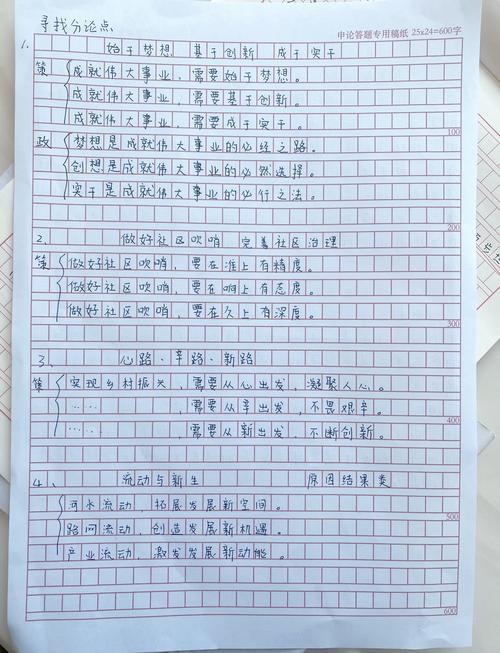 寻找分论点
申论答题专用稿纸 25x24=600字
1. 始于梦想 基于创新 成于实干
策 成就伟大事业，需要始于梦想。
成就伟大事业，需要基于创新。
成就伟大事业，需要成于实干。
100
政 梦想是成就伟大事业的必经之路。
创想是成就伟大事业的必然选择。
实干是成就伟大事业的必行之法。
200
2. 做好社区吹哨，完善社区治理
策 做好社区吹哨，要在准上有精度。
做好社区吹哨，要在响上有态度。
做好社区吹哨，要在久上有深度。
300
3. 心路、辛路、新路
策 实现乡村振兴，需要从心出发，凝聚人心。
……，需要从辛出发，不畏艰辛。
400
……，需要从新出发，不断创新。
4、 流动与新生 原因结果类
河水流动，拓展发展新空间。
500
路网流动，创造发展新机遇。
产业流动，激发发展新动能。
600